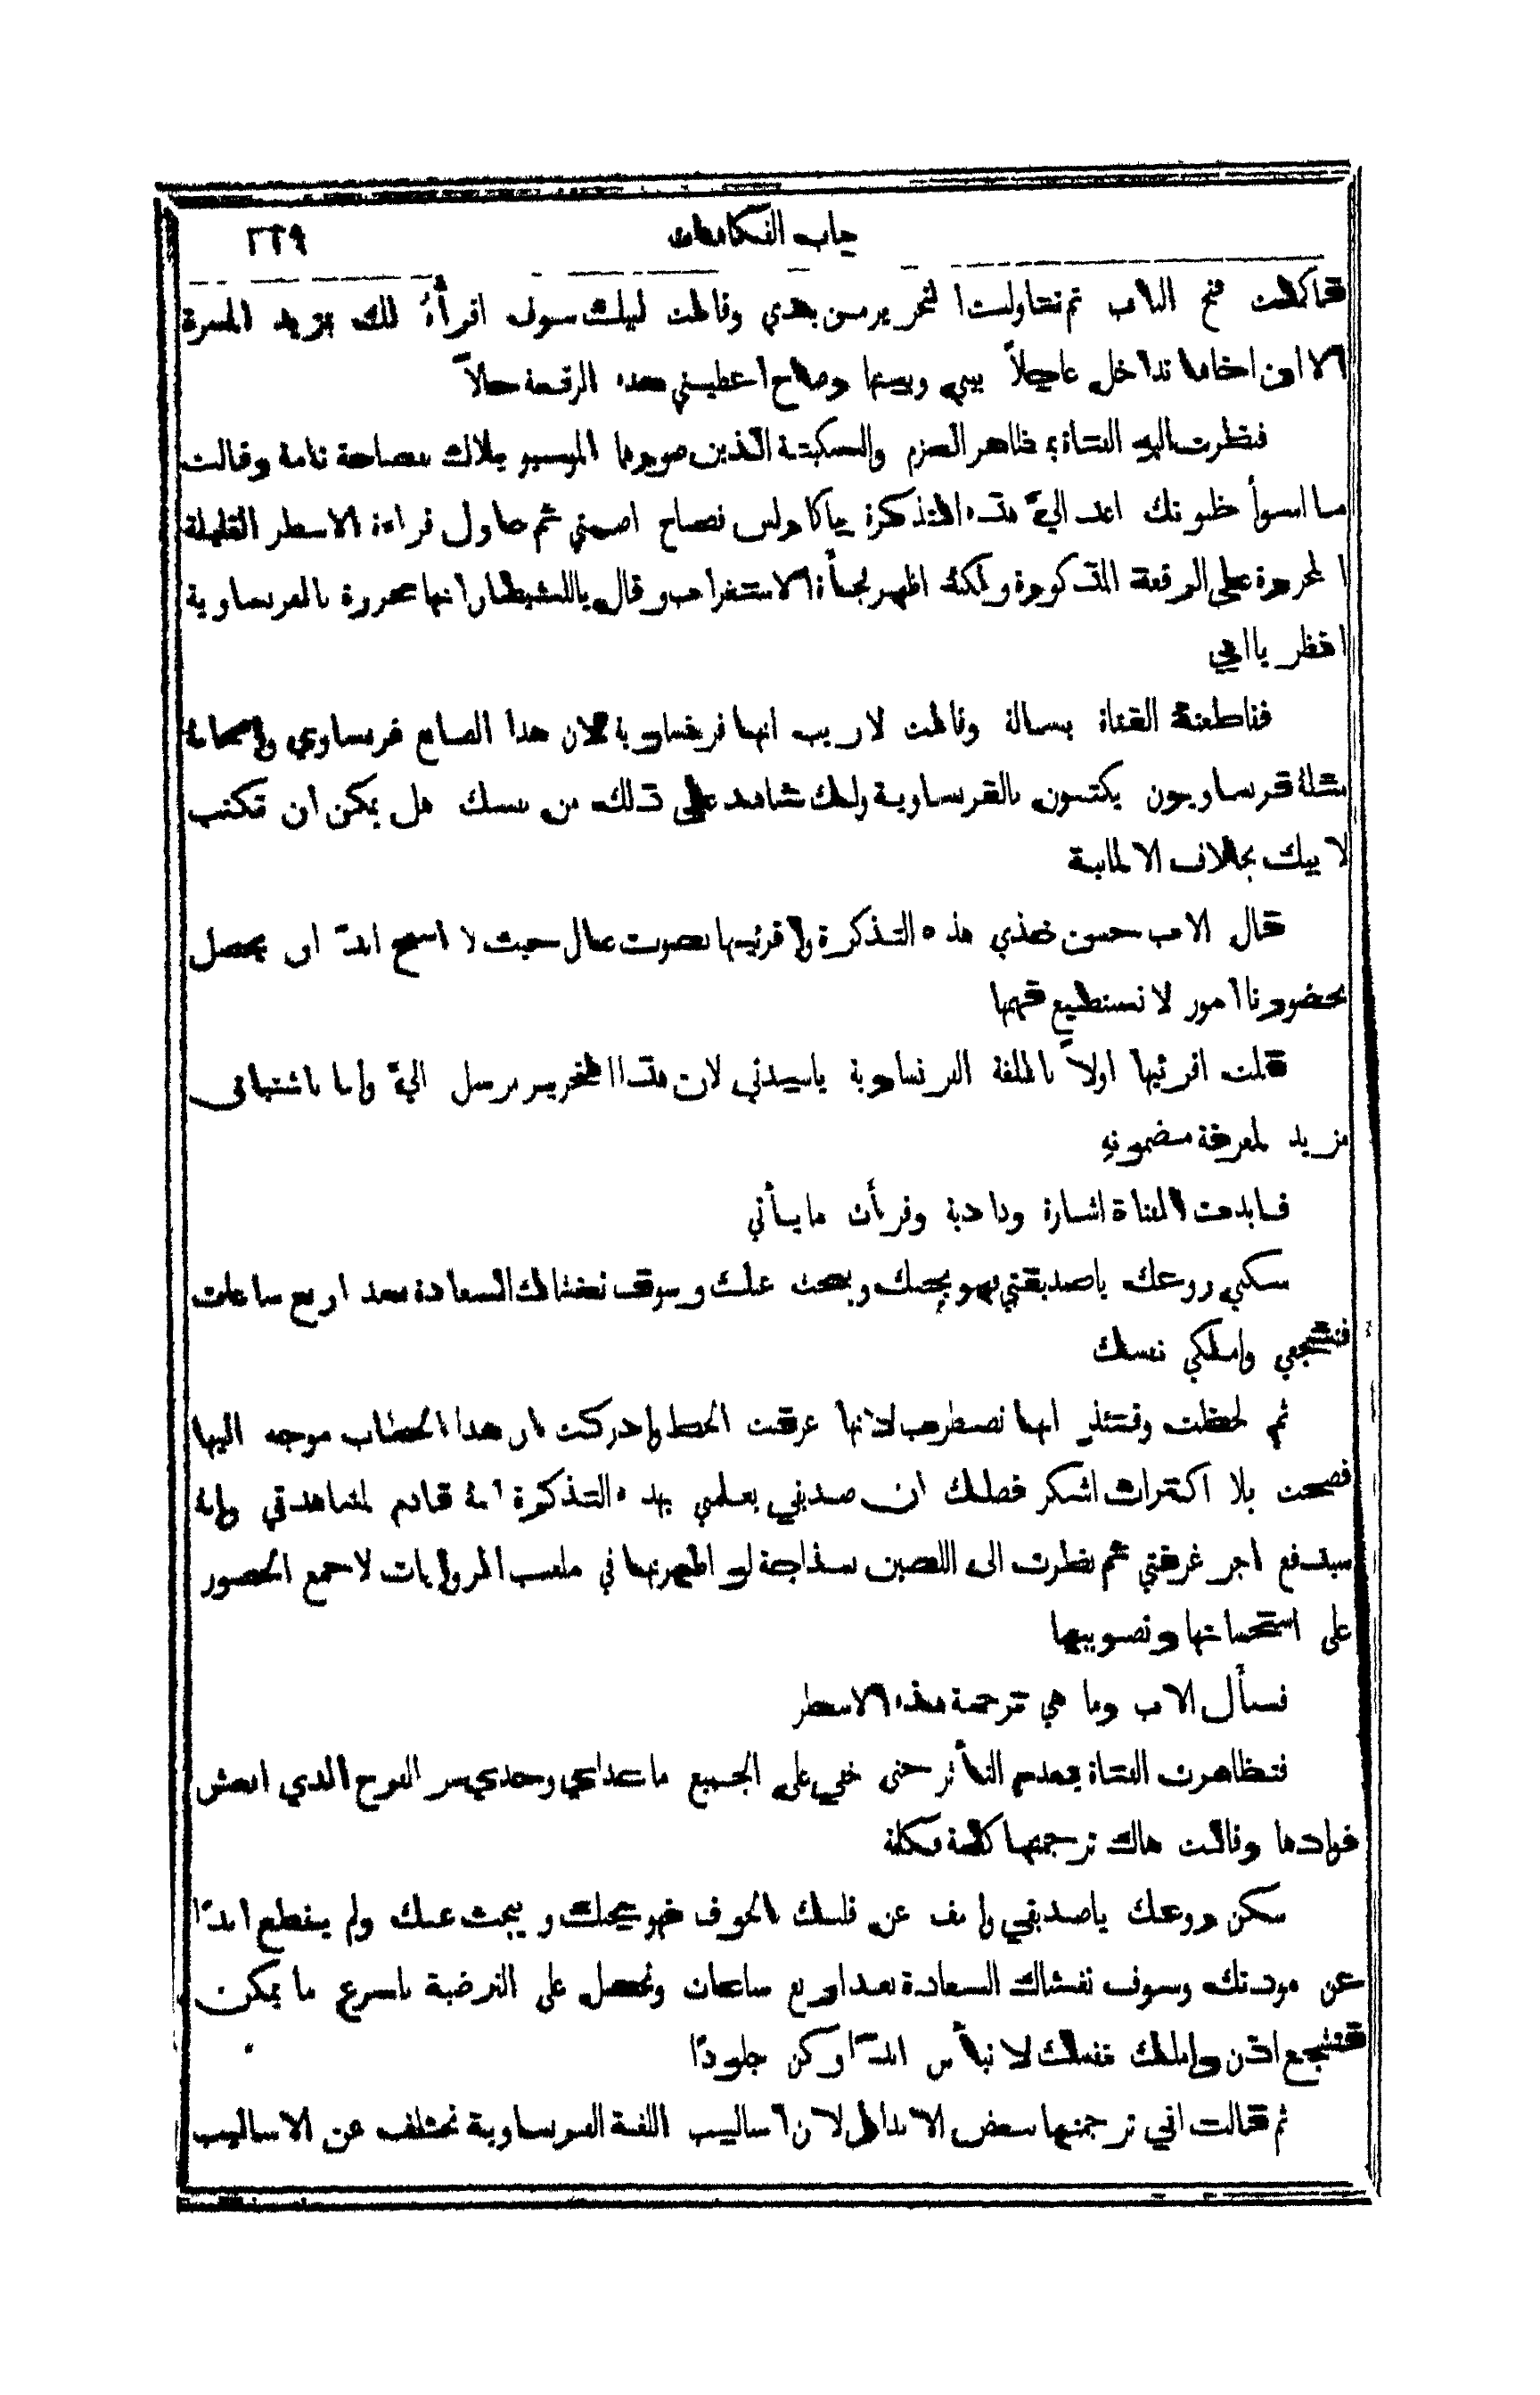 باب الفكاهات ٢٢٩
فاكملت فتح الباب ثم تناولت التحرير من يدي وقالت لبيك سوف اقرأهُ لك بمزيد المسرة
الا ان اخاها تداخل عاجلاً بيني وبينها وصاح اعطيني هذه الرقعة حالاً
فنظرت اليه الفتاة بمظاهر العزم والسكينة الذين صورها الموسيو بفصاحة تامة وقالت
ما اسوأ ظنونك اعد اليَّ هذه التذكرة فصاح اصمتي ثم حاول قراءة الاسطر القليلة
المحررة على الرقعة المذكورة ولكنه اظهر فجأة الاستغراب وقال ياللشيطان انها محررة بالفرنساوية
انظر يا ابي
فقاطعتهُ الفتاة ببسالة وقالت لا ريب انها فرنساوية لان هذا الصانع فرنساوي واصحابهُ
مثلهُ فرنساويون يكتبون بالفرنساوية ولك شاهد على ذلك من نفسك هل يمكن ان تكتب
لابيك بخلاف الالمانية
قال الاب حسن خذي هذه التذكرة واقرئيها بصوت عال حيث لا اسمح ابدًا ان يحصل
بحضورنا امور لا نستطيع فهمها
قلت اقرئيها اولاً باللغة الفرنساوية ياسيدتي لان هذا التحرير مرسل اليَّ وانا باشتياق
مزيد لمعرفة مضمونهِ
فابدت الفتاة اشارة ودادية وقرأت ما يأتي
سكني روعك ياصديقتي فهو يحبك ويبحث عنك وسوف تغشاك السعادة بعد اربع ساعات
فتشجعي واملكي نفسك
ثم لحظت وقتئذٍ انها تضطرب لانها عرفت الخط وادركت بان هذا الخطاب موجه اليها
فصحت بلا اكتراث اشكر فضلك ان صديقي يعلمني بهذه التذكرة انهُ قادم لمشاهدتي وانهُ
سيدفع اجر غرفتي ثم نظرت الى اللصين بسذاجة لو اظهرتها في ملعب الروايات لاجمع الحضور
على استحسانها وتصويبها
فسأل الاب وما هي ترجمة هذه الاسطر
فتظاهرت الفتاة بعدم التأثر حتى خفي على الجميع ما عداي وحدي سر الفرح الذي انعش
فوادها وقالت هاك ترجمتها كلمة بكلمة
سكن روعك ياصديقي وانف عن قلبك الخوف فهو يحبك ويبحث عنك ولم ينقطع ابدًا
عن مودتك وسوف تغشاك السعادة بعد اربع ساعات وتحصل على الترضية باسرع ما يمكن
فتشجع اذن واملك نفسك لا تيأس ابدًا وكن جلودًا
ثم قالت اني ترجمتها ببعض الابدال لان اساليب اللغة الفرنساوية تختلف عن الاساليب